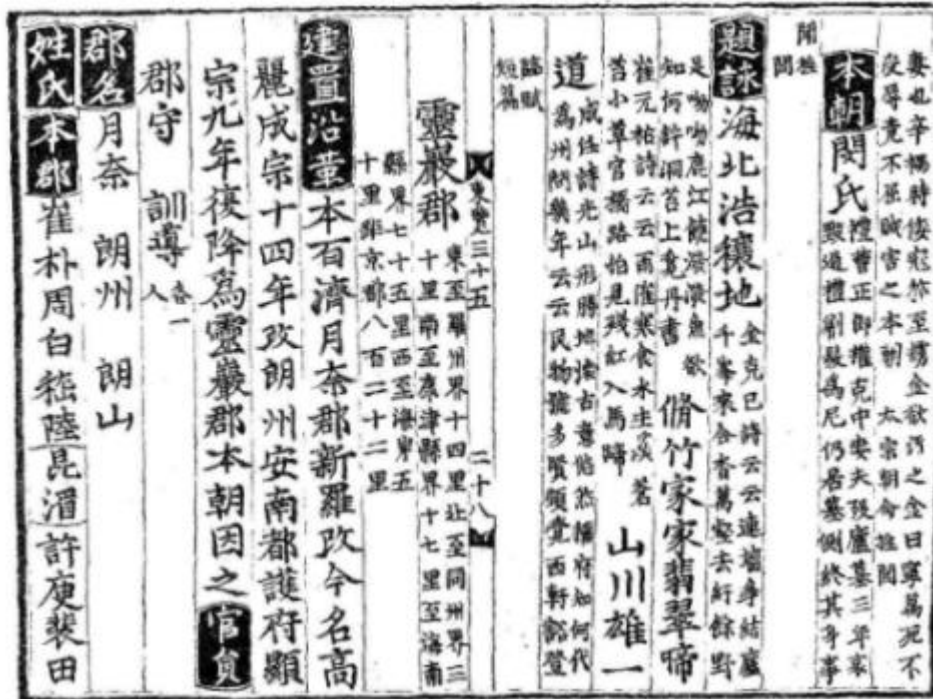 妻也辛禑時倭寇奄至擄金欲汚之金曰寧萬死不
受辱竟不屈賊害之本朝 太宗朝命旌閭
本朝 閔氏 禮曹正郎權克中妻夫歿廬墓三年家
聚過禮削髮爲尼仍居墓側終其身事
聞旌
閭
題詠 海北浩穰地 金克己詩云連墻爭結廬
千峯來合沓萬壑去紆餘野
是呦呦鹿江饒潑潑魚欲
知何許洞苔上食丹書 脩竹家家翡翠啼
崔元祐詩云云雨催寒食水生溪蒼
苔小草官橋路怕見殘紅入馬蹄 山川雄一
道 成任詩光山形勝地懷古意悠然 府知何代
爲州閱幾年云云民物號多賢 西軒豁登
臨賦
短篇
東覽三十五 二十八
靈巖郡 東至羅州界十四里北至同州界三
十里南至康津縣界十七里至海南
縣界七十五里西至海岸五
十里距京都八百二十二里
建置沿革 本百濟月奈郡新羅改今名高
麗成宗十四年改朗州安南都護府顯
宗九年復降爲靈巖郡本朝因之 官員
郡守 訓導 各一
人
郡名 月奈 朗州 朗山
姓氏 本郡 崔朴周白嵇陸 昆湄 許庾裴田